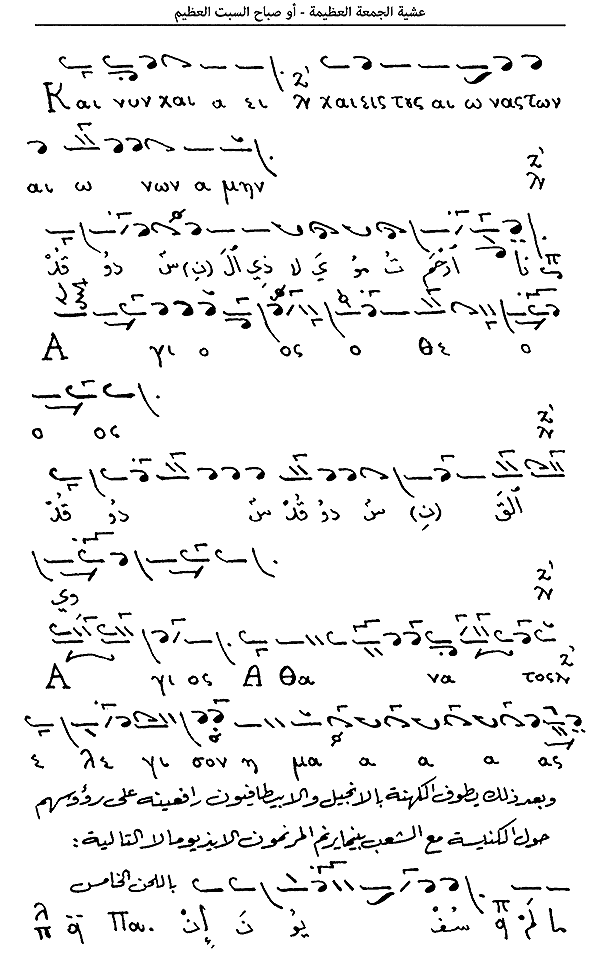 عشية الجمعة العظيمة - أو صباح السبت العظيم
Και νυν και α ει και εις τους αι ω νας των
αι ω νων α μην
قُدْ دُو سٌ (نِ) الَ ذِي لا يَ مُو تُ ارْحَمْ نا
Α γι ο ος ο Θε ο
ο ος
قُدْ دُو سٌ قُدْ دُو سٌ (نِ) الْقَ
وِي
Α γι ος Α θα να τος
ε λε γι σον η μα α α α ας
وبعد ذلك يطوف الكهنة بالانجيل والابيطافيون رافعينه على رؤوسهم
حول الكنيسة مع الشعب بينما يرنم المرنمون الايذيوملا التالية:
باللحن الخامس
Πα. إِنْ نَ يُو سُفْ لَمْ ما